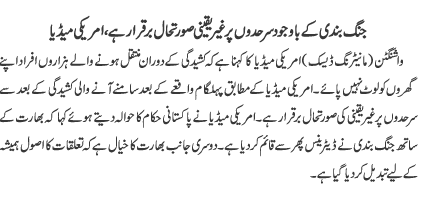 جنگ بندی کے باوجود سرحدوں پر غیر یقینی صورتحال برقرار ہے، امریکی میڈیا
واشنگٹن (مانیٹرنگ ڈیسک) امریکی میڈیا کا کہنا ہے کہ کشیدگی کے دوران منتقل ہونے والے ہزاروں افراد اپنے
گھروں کو لوٹ نہیں پائے۔ امریکی میڈیا کے مطابق پہلگام واقعے کے بعد سامنے آنے والی کشیدگی کے بعد سے
سرحدوں پر غیر یقینی کی صورتحال برقرار ہے۔ امریکی میڈیا نے پاکستانی حکام کا حوالہ دیتے ہوئے کہا کہ بھارت کے
ساتھ جنگ بندی نے ڈیٹرینس پھر سے قائم کر دیا ہے۔ دوسری جانب بھارت کا خیال ہے کہ تعلقات کا اصول ہمیشہ
کے لیے تبدیل کر دیا گیا ہے۔